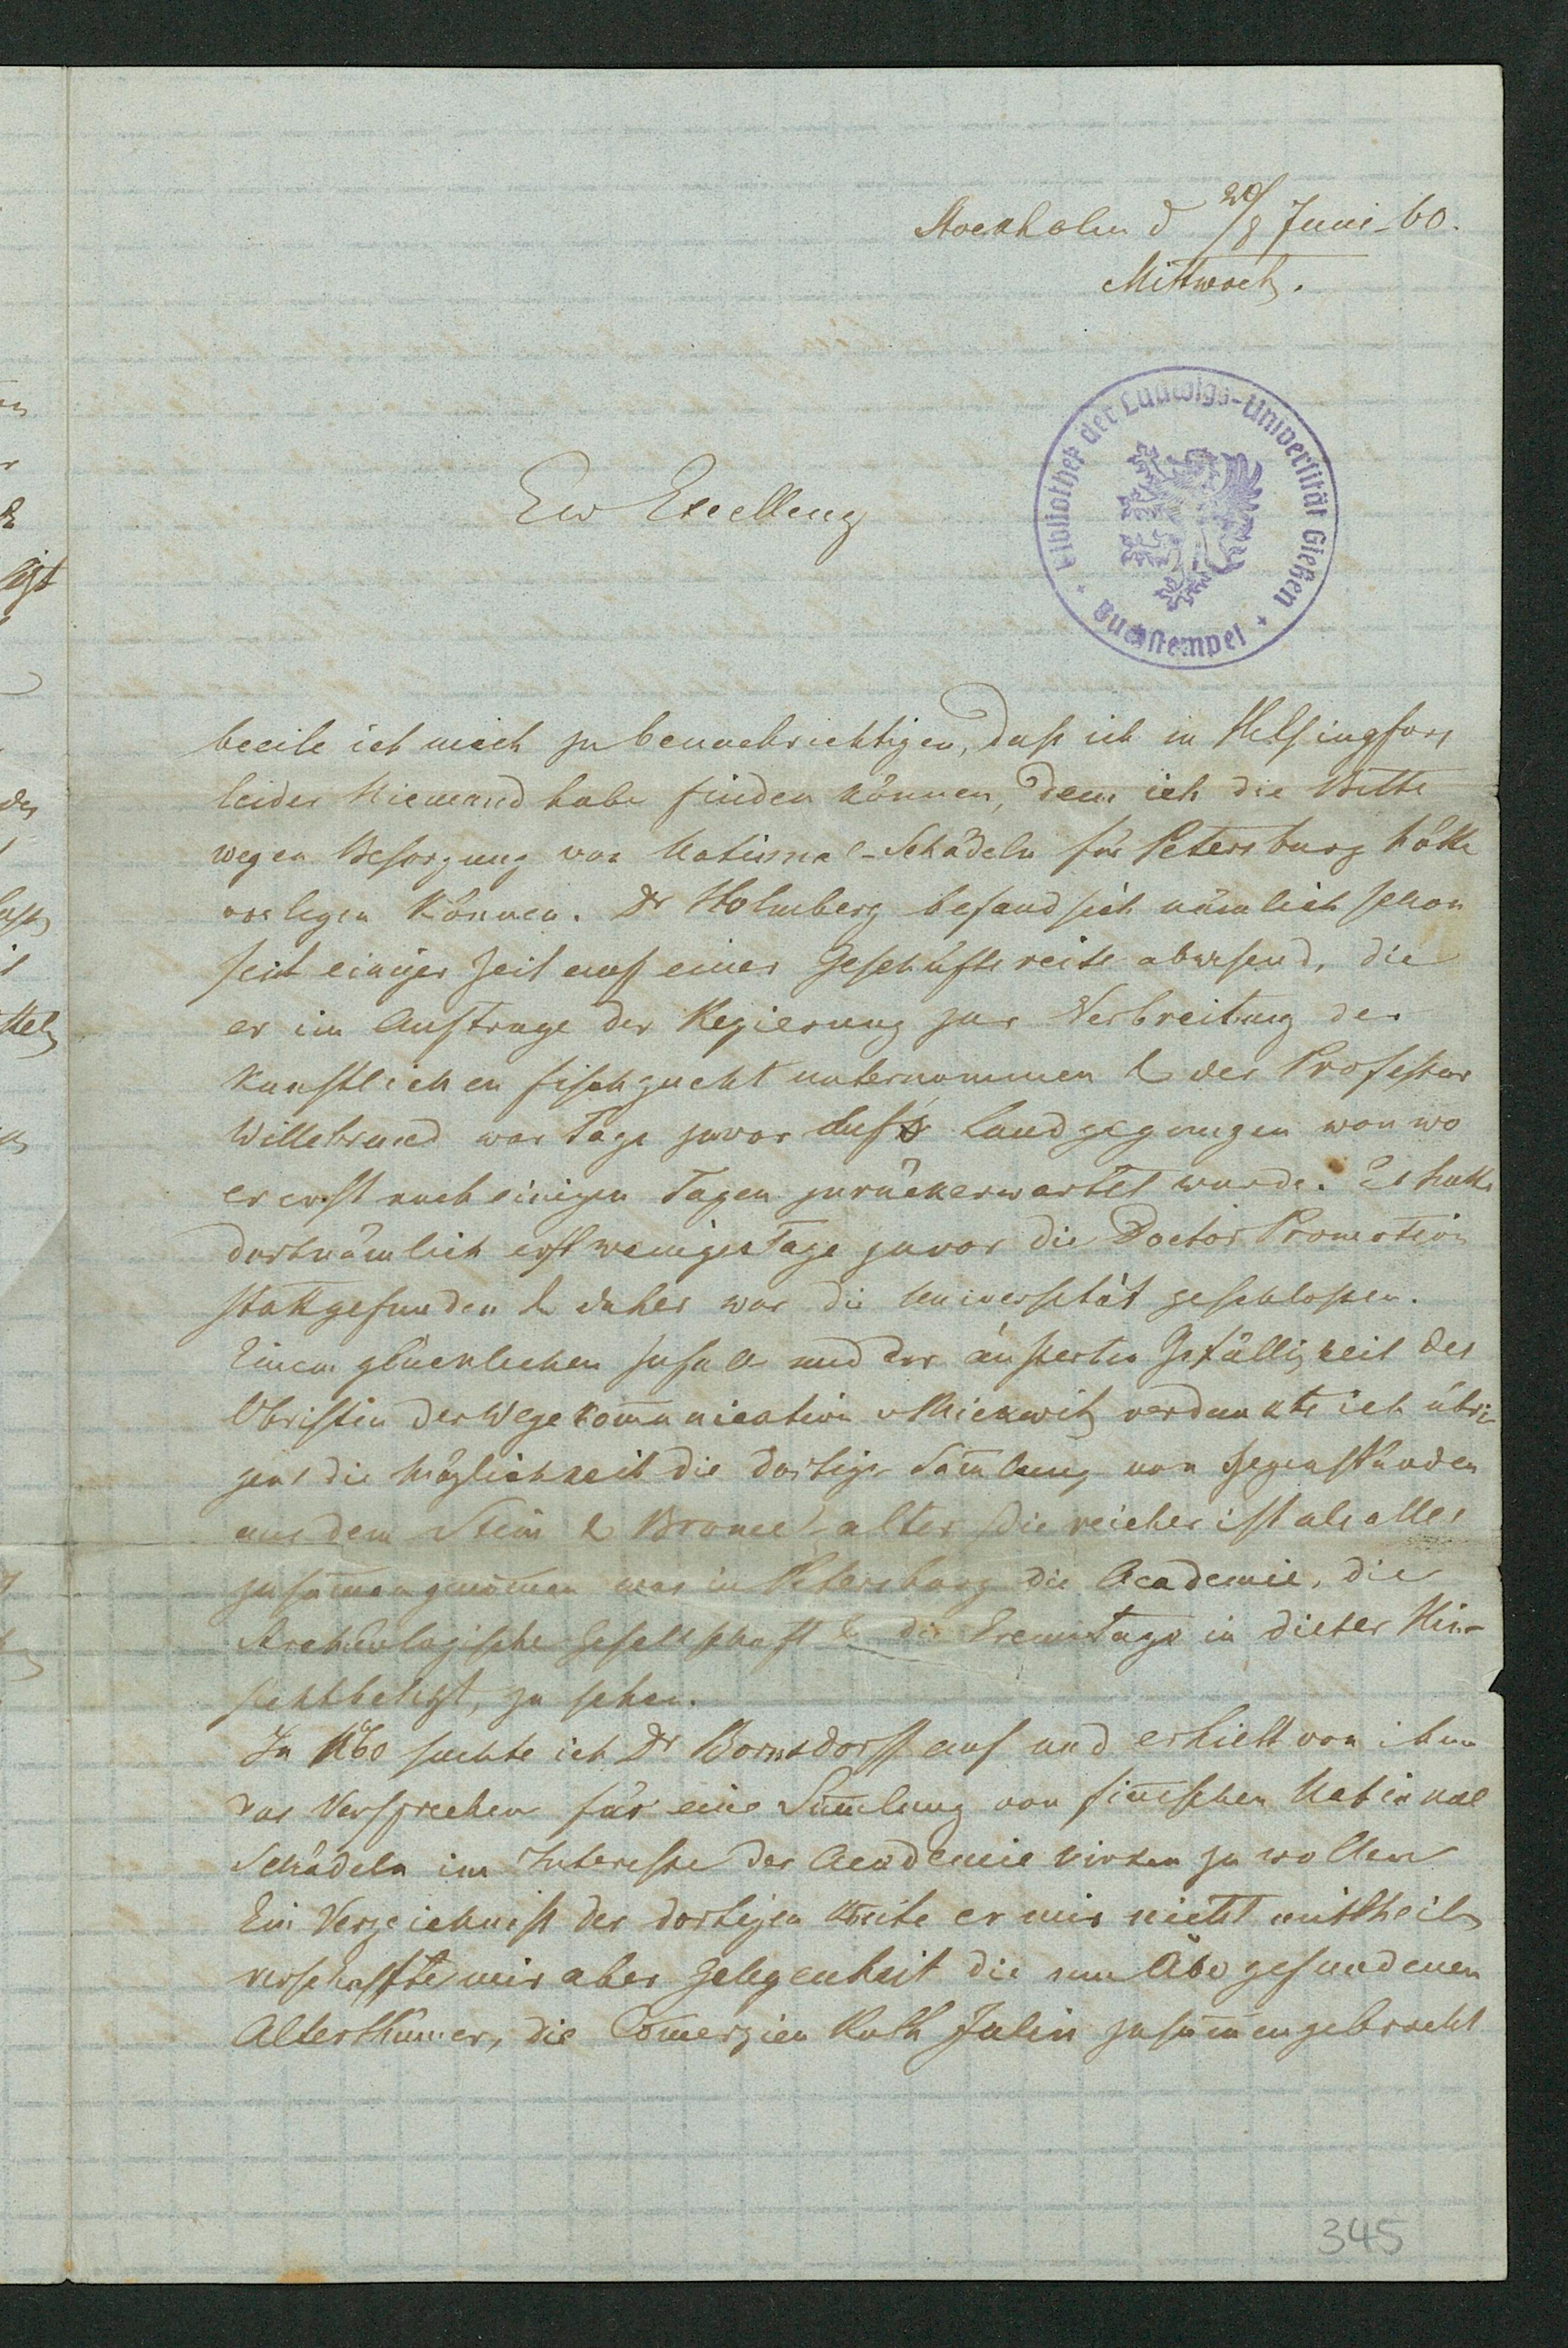 Stockholm d 20/8 Juni-60.
Mittwoch.
Bibliothek der Ludwigs-Universität Gießen
Buchstempel
Ew Excellenz
beeile ich mich zu benachrichtigen, daß ich in Helsingfors
leider Niemand habe finden können, dem ich die Bitte
wegen Besorgung von National-Schädeln für Petersburg hätte
vorlegen können. Dr Holmberg befand sich nämlich schon
seit einiger Zeit auf einer Geschäftsreise abwesend, die
er im Auftrage der Regierung zur Verbreitung der
künstlichen Fischzucht unternommen & der Professor
Willebrand war Tags zuvor aufs Land gegangen von wo
er erst nach einigen Tagen zurückerwartet wurde. Es hatte
dort nämlich erst wenige Tage zuvor die Doctor Promotion
stattgefunden & daher war die Universität geschlossen.
Einem glücklichen Zufall und der äußersten Gefälligkeit des
Obristen der Wegekom̄unication v Mickwitz verdankte ich übri-
gens die Möglichkeit die dortige Sam̄lung von Gegenständen
aus dem Stein & Bronce-alter die reicher ist als alles
zusam̄engenom̄en was in Petersburg die Academie, die
Archeologische Gesellschaft & die Eremitage in dieser Hin-
sicht besitzt, zu sehen.
In Åbo suchte ich Dr Bonsdorff auf und erhielt von ihm
das Versprechen für eine Sam̄lung von fin̄ischen National
Schädeln im Interesse der Academie wirken zu wollen
Ein Verzeichniß der dortigen er mir nicht mittheilen
verschaffte mir aber Gelegenheit die um Åbo gefundenen
Alterthümer, die Com̄erzien Rath Julin zusam̄engebracht
345